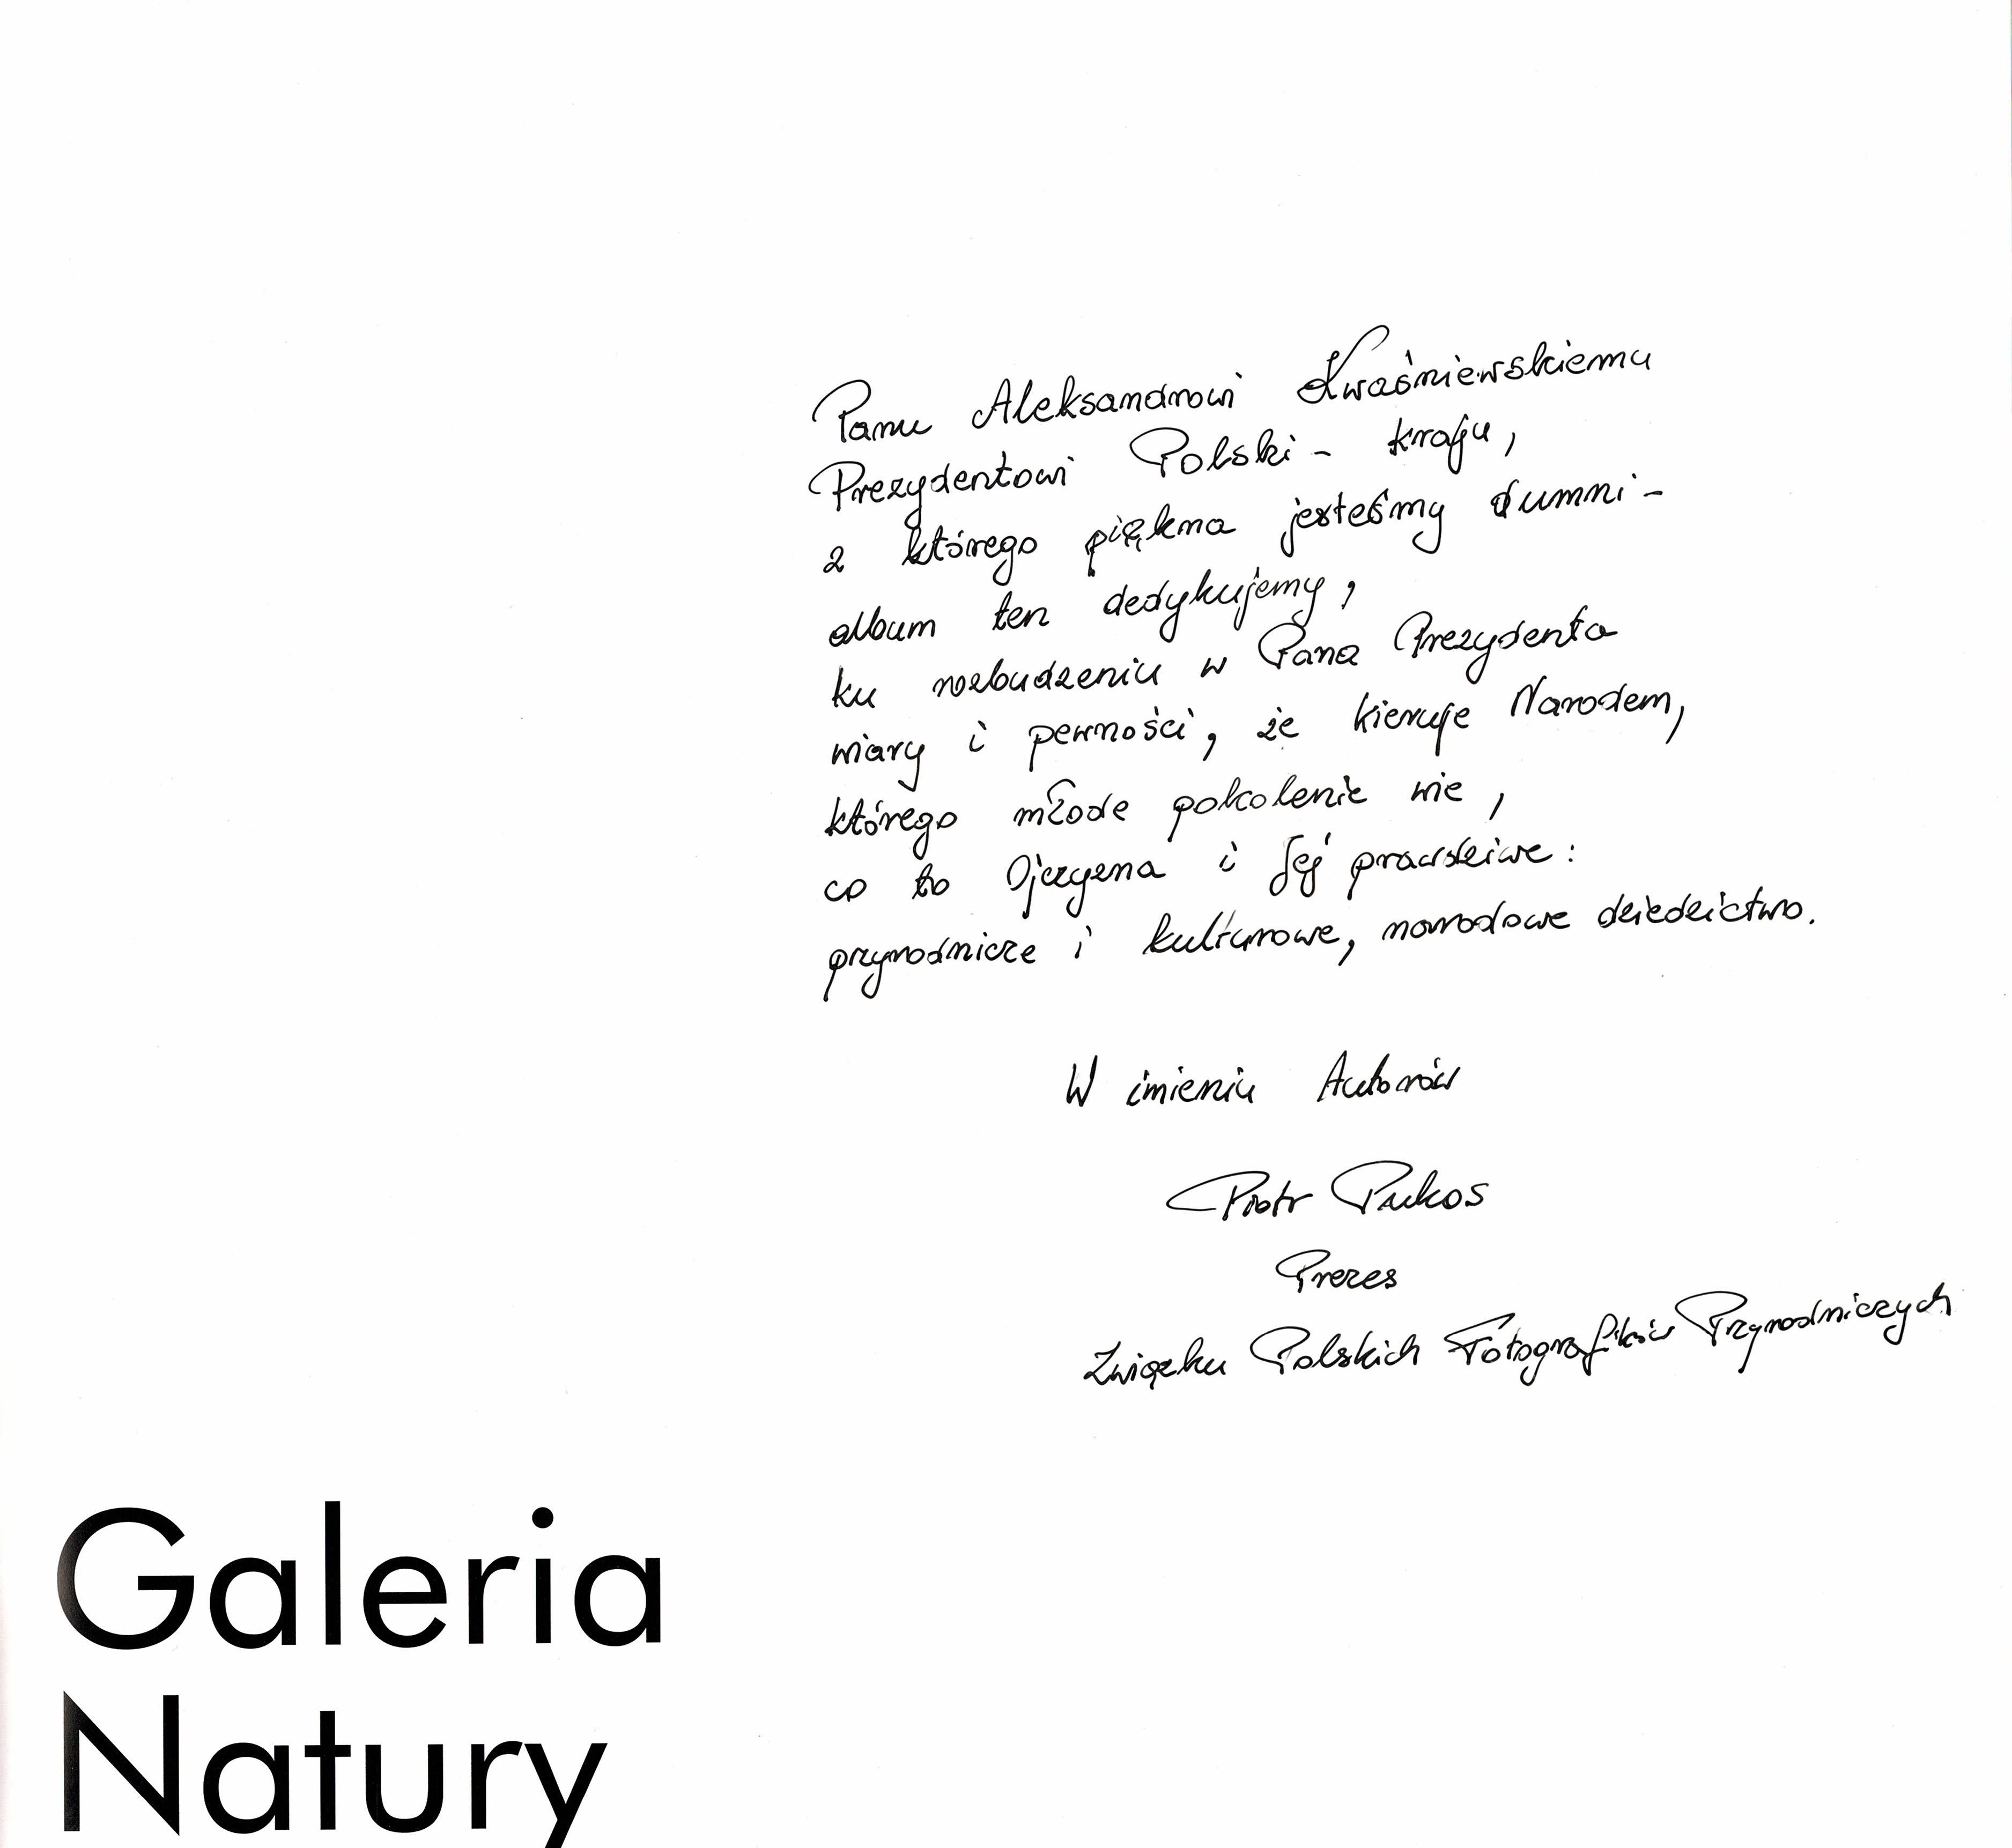 Panu Aleksandrowi Kwaśniewskiemu
Prezydentowi Polski - kraju,
z którego piękna jesteśmy dumni -
album ten dedykujemy,
ku rozbudzeniu w Pana Prezydenta
wiary i pewności, że kieruje Narodem,
którego młode pokolenie wie,
co to Ojczyzna i Jej prawdziwe:
przyrodnicze i kulturowe, narodowe dziedzictwo.
W imieniu Autorów
Piotr Pukos
Prezes
Związku Polskich Fotografików Przyrodniczych
Galeria
Natury